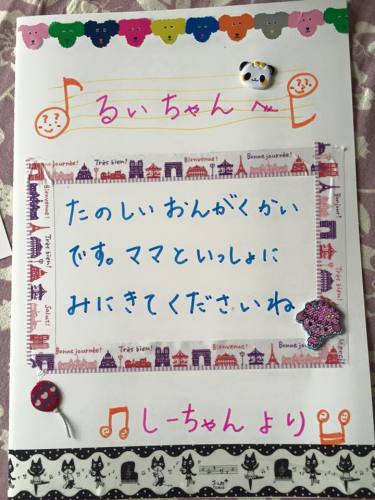 るぃちゃんへ
Bonne journée! Très bien! Bienvenue! Bonne journée! Très bien! Bienvenue!
たのしいおんがくかい
です。ママといっしょに
みにきてくださいね
Très bien!
Salut!
Bonjour!
Bonne journée! Très bien! Bienvenue! Bonne journée!
しーちゃんより